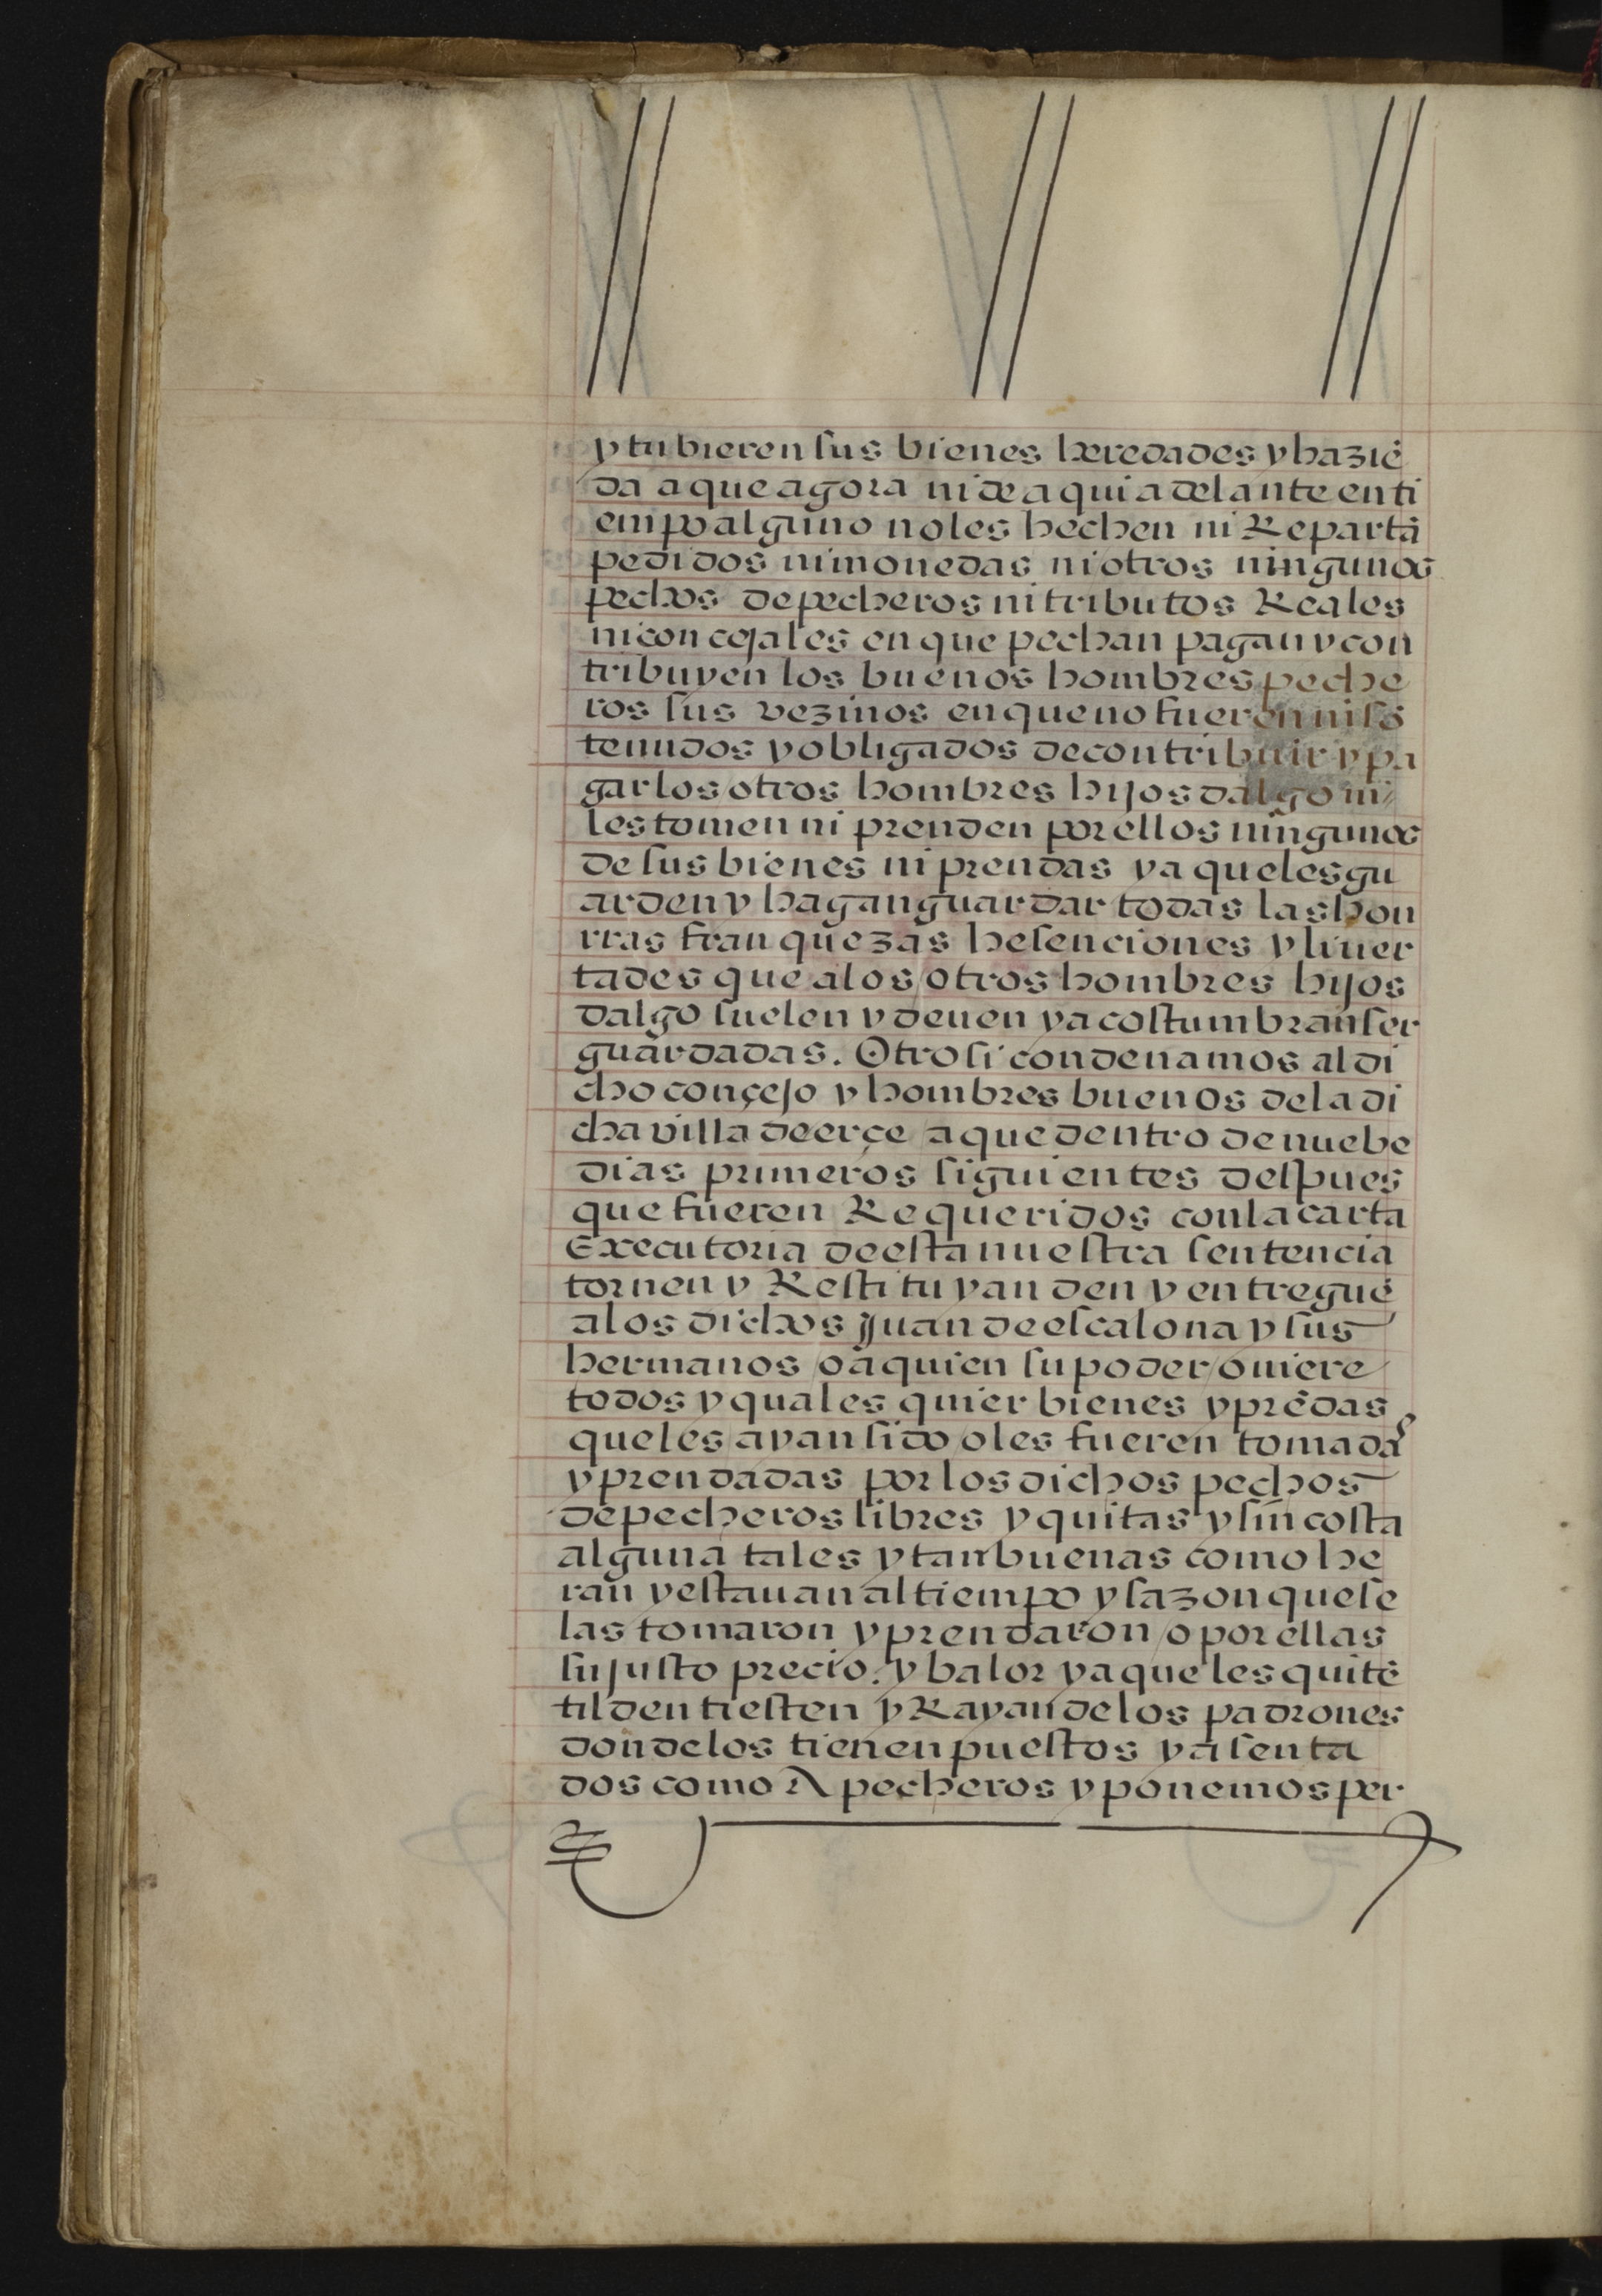 y tubieren sus bienes heredades y haziē
da a que agora ni de aqui adelante en ti
empo alguno no les hechen ni Repartā
pedidos ni monedas ni otros ningunos
pechos de pecheros ni tributos Reales
ni concejales en que pechan pagan y con
tribuyen los buenos hombres peche
ros sus vezinos en que no fueren ni sō
tenudos y obligados de contribuir y pa
gar los otros hombres hijos dalgo ni
les tomen ni prenden por ellos ningunos
de sus bienes ni prendas y a que les gu
arden y hagan guardar todas las hon
rras franquezas hesenciones y liuer
tades que a los otros hombres hijos
dalgo suelen y deuen y acostumbran ser
guardadas. Otrosi condenamos al di
cho conçejo y hombres buenos de la di
cha villa de erçe a que dentro de nuebe
dias primeros siguientes despues
que fueren Requeridos con la carta
Executoria de esta nuestra sentencia
tornen y Restituyan den y entreguē
a los dichos Juan de escalona y sus
hermanos o a quien su poder ouiere
todos y quales quier bienes y prēdas
que les ayan sido o les fueren tomadas
y prendadas por los dichos pechos
de pecheros libres y quitas y sin costa
alguna tales y tan buenas como he
ran y estauan al tiempo y sazon que se
las tomaron y prendaron o por ellas
su justo precio. y balor y a que les quitē
tilden tiesten y Rayan de los padrones
donde los tienen puestos y asenta
dos como A pecheros y ponemos per